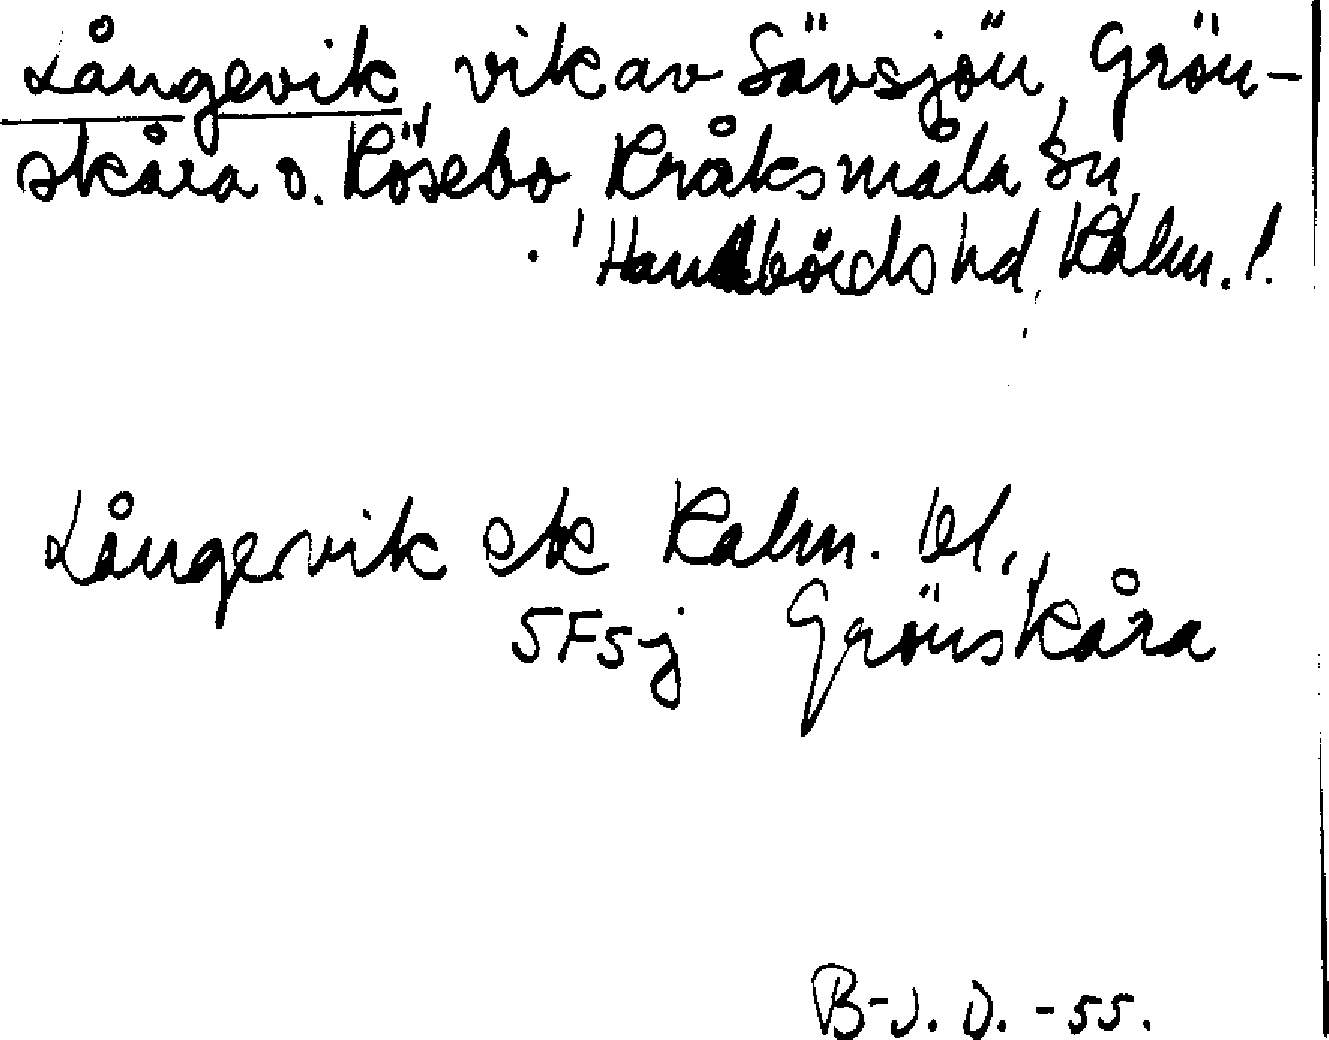 Långevik, vik av Sävsjön, Grön-
skåra o. Rösebo, Kråksmåla sn,
Handbörds hd, Kalm. l.
Långevik ek Kalm. bl.,
5F5j Grönskåra
B-J. D. -55.